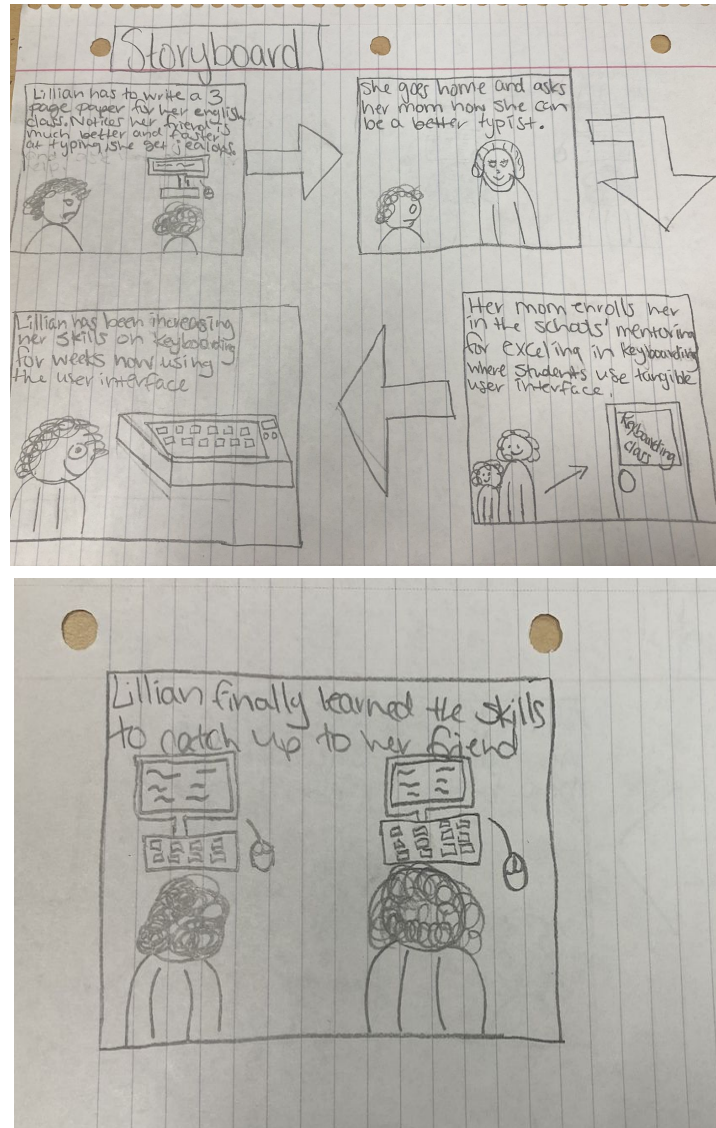 Storyboard
Lillian has to write a 3
page paper for her english
class. Notices her friend is
much better and faster
at typing, she get jealous.
She goes home and asks
her mom how she can
be a better typist.
Her mom enrolls her
in the schols' mentoring
for exceling in keyboarding
where students use tangible
user interface.
Keyboarding
class
Lillian has been increasing
her skills on keyboarding
for weeks now using
the user interface
Lillian finally learned the skills
to catch up to her friend